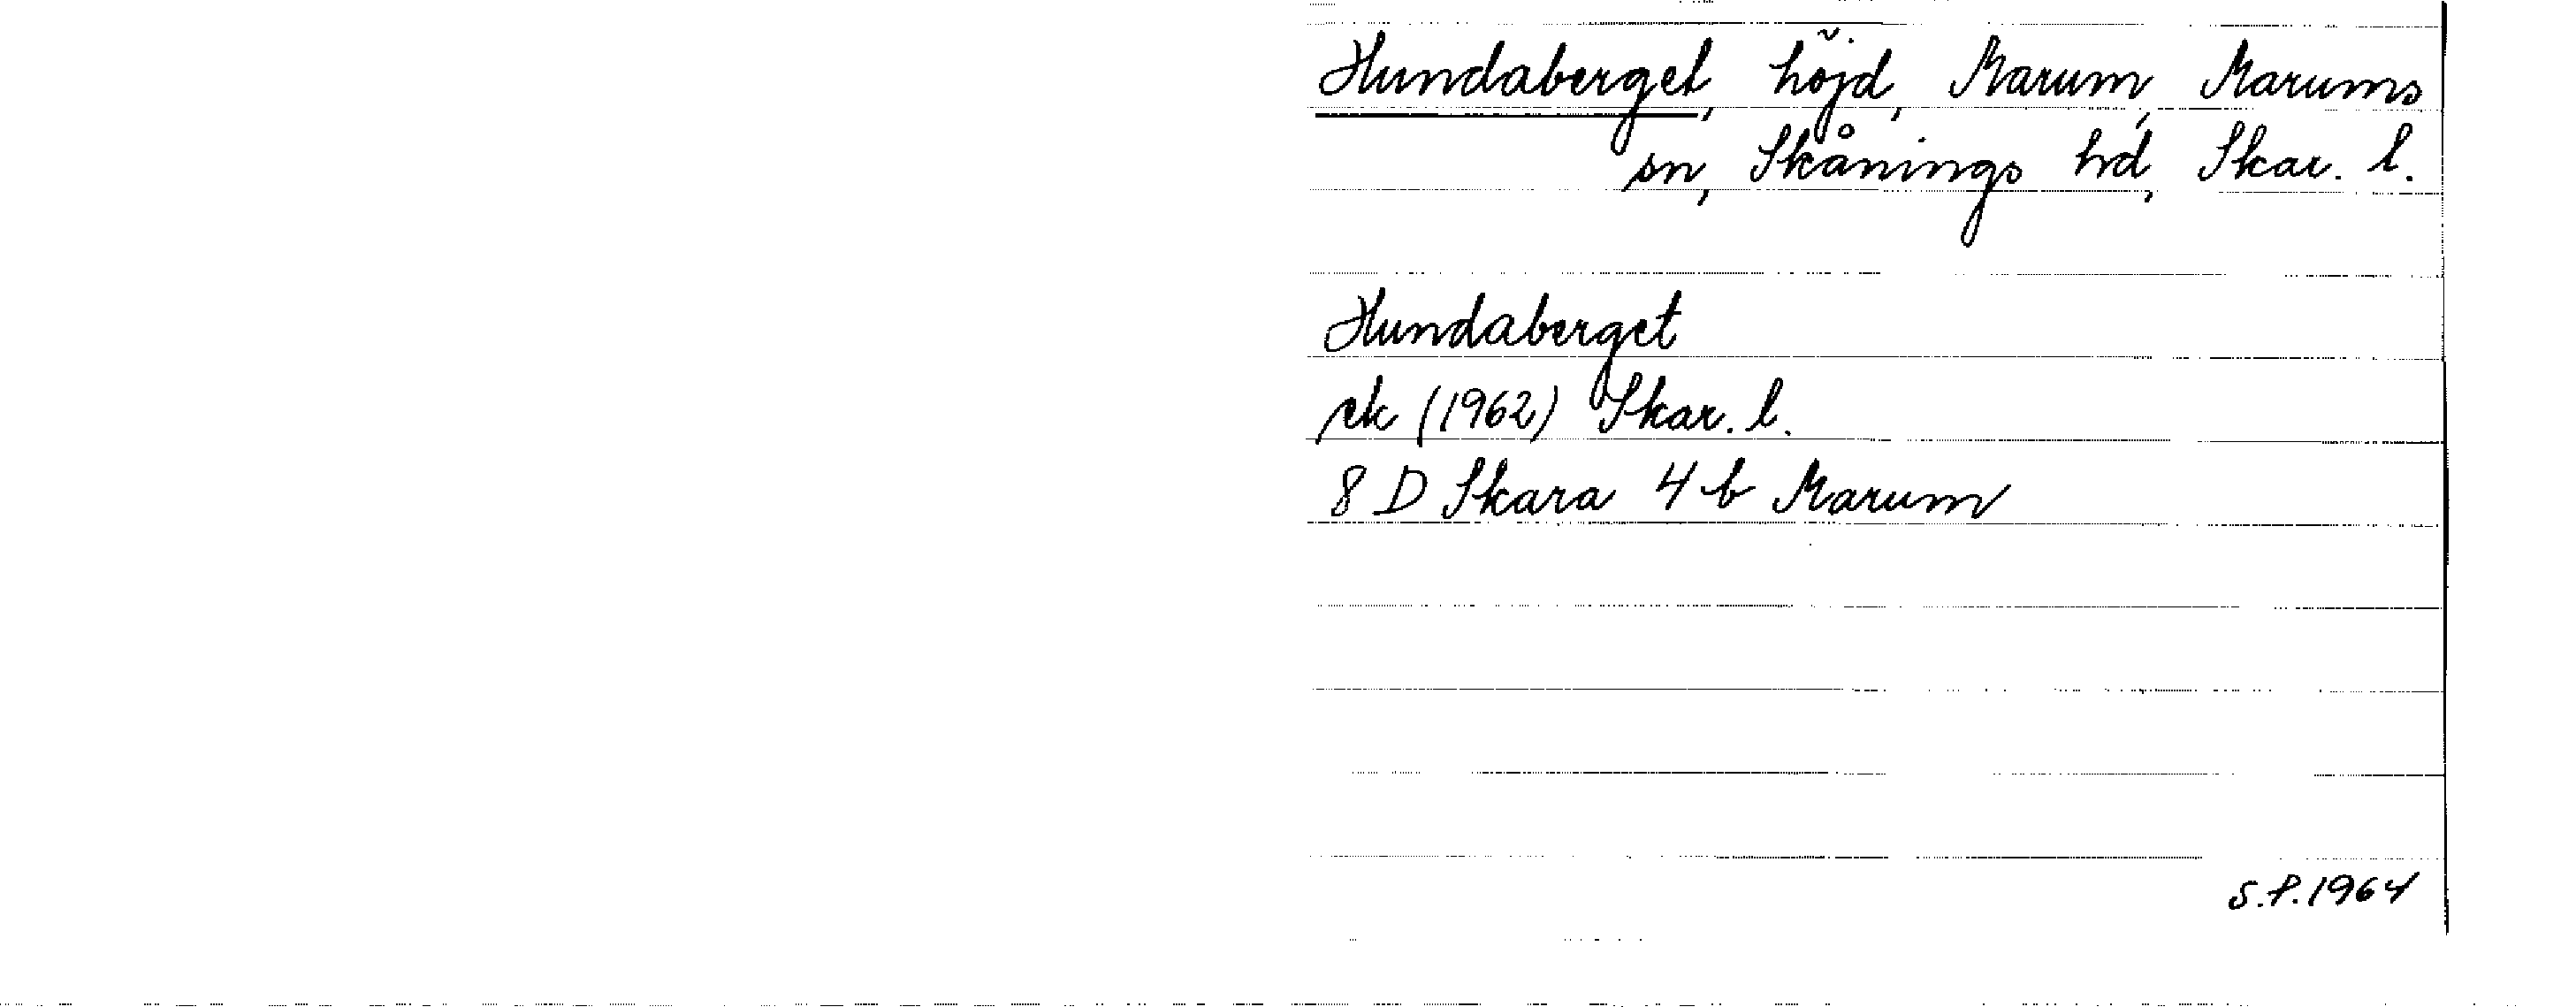 Hundaberget, höjd, Marum, Marums
sn, Skånings hd, Skar. l.
Hundaberget
ek (1962) Skar. l.
8 D Skara 4 b Marum
S.P. 1964